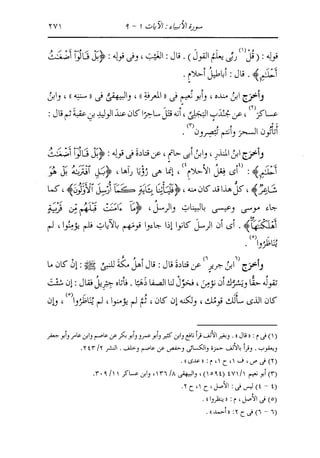 سورة الأنبياء : الآيات ١ - ٩ ٢٧١
قوله : ﴿ قُلْ(١) ربِّى يعلَمُ القولَ ﴾ . قال : الغَيْبَ . وفى قوله : ﴿ بَلْ قَالُوٓا۟ أَضْغَـٰثُ
أَحْلَـٰمٍۭ ﴾ . قال : أباطيلُ أحلامٍ .
وأخرَج ابنُ منده ، وأبو نعيمٍ فى « المعرفةِ » ، والبيهقىُّ فى « سننِه » ، وابنُ
عساكرَ(٢) ، عن جُنْدَبٍ البَجَلىِّ(٣) ، أنه قتَل ساحرًا كان عندَ الوليدِ بنِ عقبةَ ثم قال :
أتأتُون السحرَ وأنتم تُبصِرون(٢) .
وأخرَج ابنُ المنذرِ ، وابنُ أبى حاتمٍ ، عن قتادةَ فى قولِه : ﴿ بَلْ قَالُوٓا۟ أَضْغَـٰثُ
أَحْلَـٰمٍۭ ﴾ : (٤) أى فِعْلُ الأحلامِ(٤) ، إنما هى رُؤْيا رآها ، ﴿ بَلِ ٱفْتَرَىٰهُ بَلْ هُوَ
شَاعِرٌ ﴾ ، كلُّ هذا قد كان منه ، ﴿ فَلْيَأْتِنَا بِـَٔايَةٍ كَمَآ أُرْسِلَ ٱلْأَوَّلُونَ ﴾ ، كما
جاء موسى وعيسى بالبيناتِ والرسلُ ، ﴿ مَآ ءَامَنَتْ قَبْلَهُم مِّن قَرْيَةٍ
أَهْلَكْنَـٰهَآ ﴾ . أى أن الرسلَ كانوا إذا جاءوا قومَهم بالآياتِ فلم يؤمِنوا ، لم
يُناظَروا(٥) .
وأخرَج (٦) ابنُ جريرٍ(٦) عن قتادةَ قال : قال أهلُ مكَّةَ للنبىِّ ﷺ : إنْ كان ما
تقولُه حقًّا ويَسُرُّك أن نؤمِنَ ، فحَوِّلْ لنا الصفا ذهبًا . فأتاه جبريلُ فقال : إن شئتَ
كان الذى سأَلك قومُك ، ولكنه إن كان ، ثُمَّ لم يؤمنوا ، لم يُناظَروا(٥) ، وإن
(١) فى م : « قال » . وبغير الألف قرأ نافع وابن كثير وأبو عمرو وأبو بكر عن عاصم وابن عامر وأبو جعفر
ويعقوب . وقرأ بالألف حمزة والكسائى وحفص عن عاصم وخلف . النشر ٢/ ٢٤٣.
(٢) فى ص ، ف ١، ح ١، م : « عدى » .
(٣) أبو نعيم ٤٧١/١ (١٥٩٤) ، والبيهقى ١٣٦/٨ ، وابن عساكر ٣٠٩/١١.
(٤ - ٤) ليس فى : الأصل ، ح ١، ح ٢.
(٥) فى الأصل ، م : « ينظروا » .
(٦ - ٦) فى ح ٢ : « أحمد » .